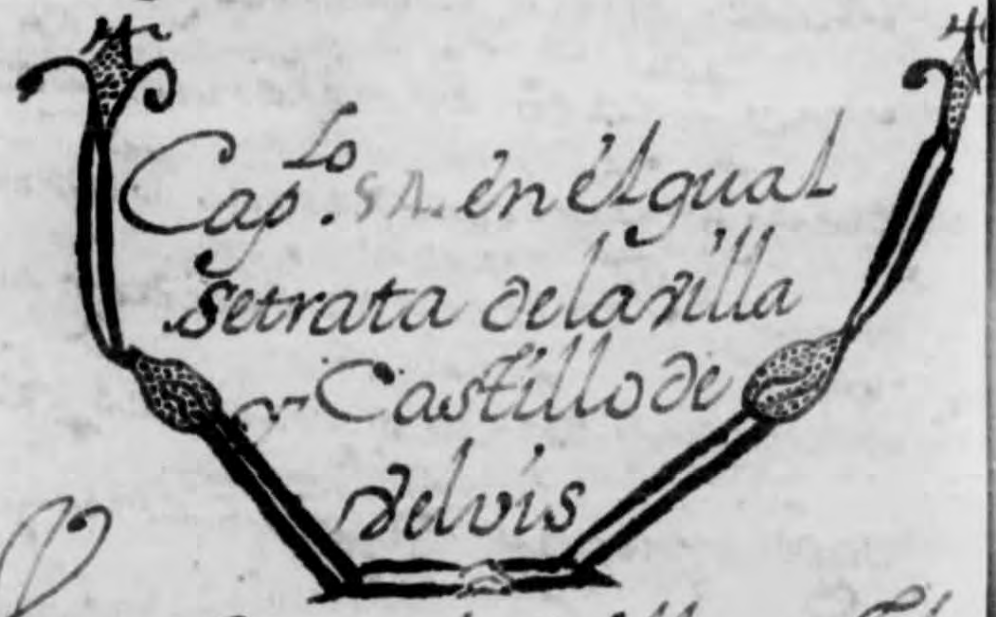 Cap.Lo 51. en el qual
se trata de la villa
y Castillo de
Velvis